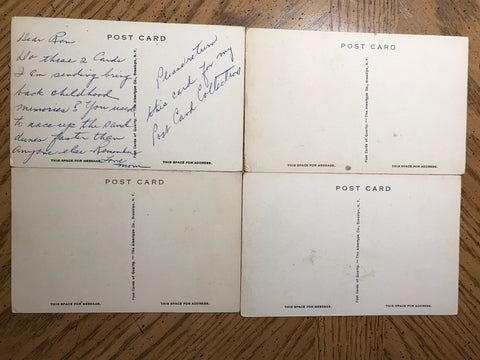 POST CARD
Dear Ron
Do these 2 Cards
I am sending bring
back childhood
memories? You used
to race up the sand
dunes faster than
anyone else Remember
Love
Mom
Please return
this card for my
Post Card Collection
Post Cards of Quality. — The Albertype Co., Brooklyn, N. Y.
THIS SPACE FOR MESSAGE.
THIS SPACE FOR ADDRESS.
POST CARD
Post Cards of Quality. — The Albertype Co., Brooklyn, N. Y.
THIS SPACE FOR MESSAGE.
THIS SPACE FOR ADDRESS.
POST CARD
Post Cards of Quality. — The Albertype Co., Brooklyn, N. Y.
THIS SPACE FOR MESSAGE.
THIS SPACE FOR ADDRESS.
POST CARD
Post Cards of Quality. — The Albertype Co., Brooklyn, N. Y.
THIS SPACE FOR MESSAGE.
THIS SPACE FOR ADDRESS.